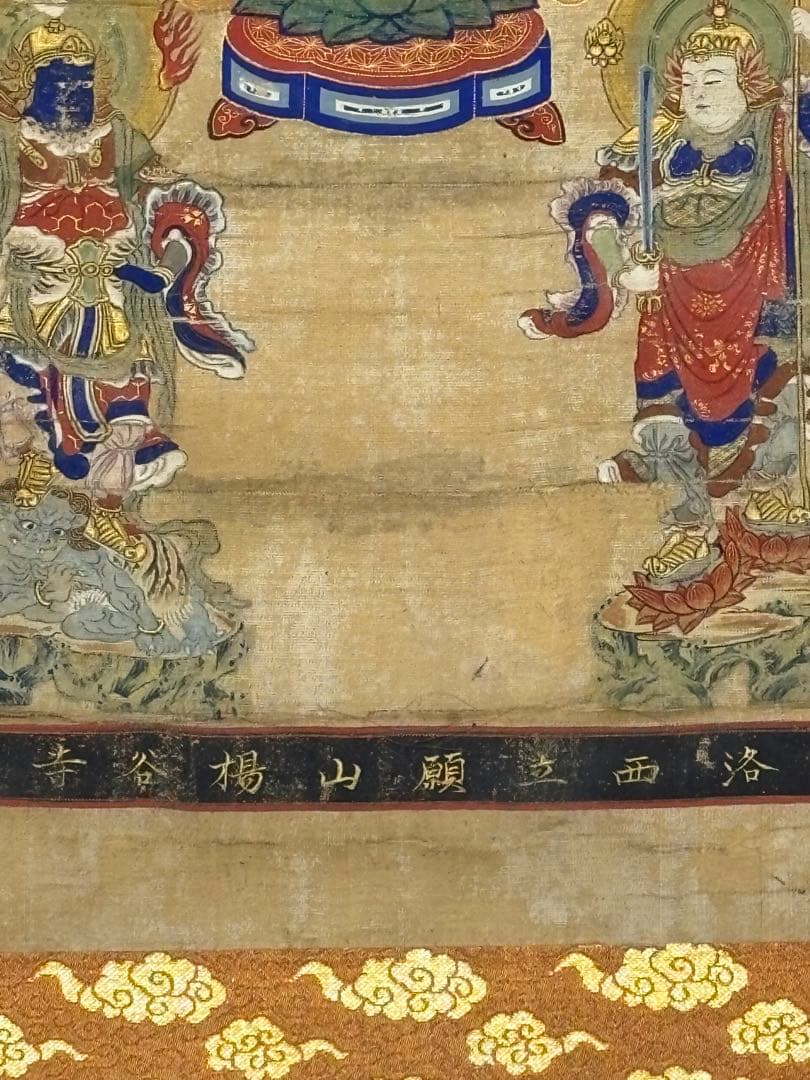 洛西立願山楊谷寺